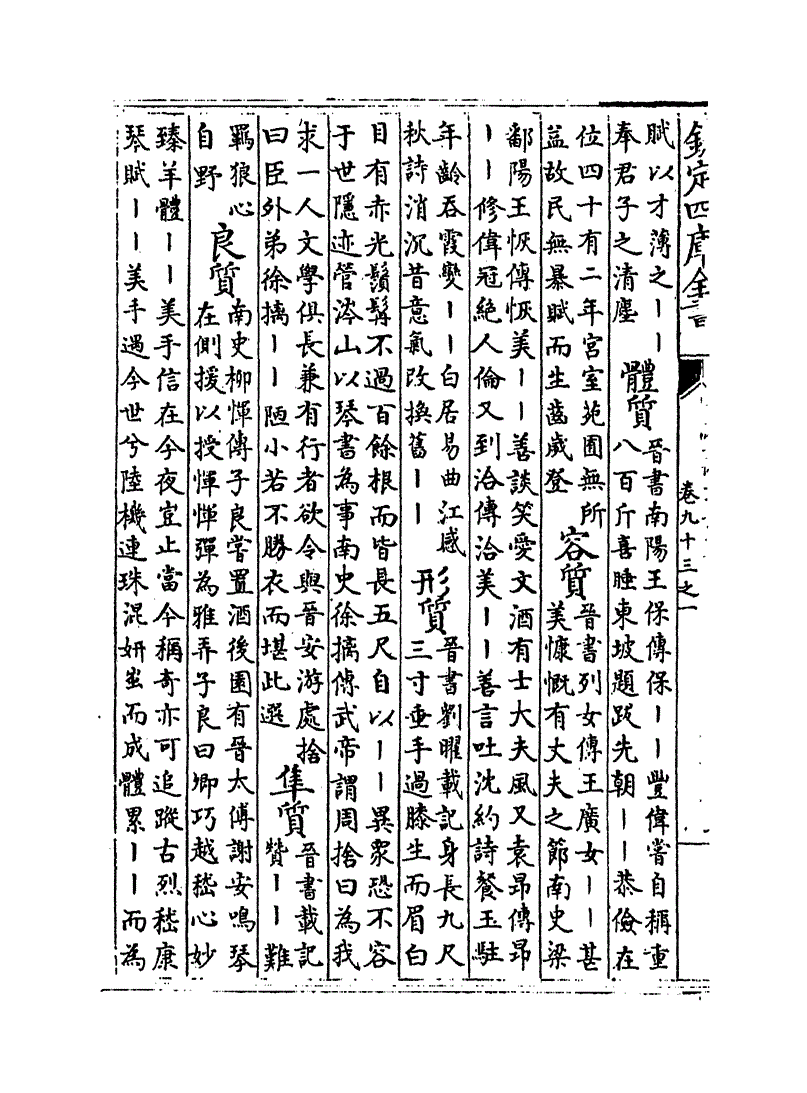 欽定四庫全書
卷九十三之一
賦以才薄之丨丨
奉君子之清塵
體質
晉書南陽王保傳保丨丨豐偉嘗自稱重
八百斤喜睡東坡題跋先朝丨丨恭儉在
位四十有二年宮室苑囿無所
益故民無暴賦而生齒歲登
容質
晉書列女傳王廣女丨丨甚
美慷慨有丈夫之節南史梁
鄱陽王恢傳恢美丨丨善談笑愛文酒有士大夫風又袁昂傳昂
丨丨修偉冠絕人倫又到洽傳洽美丨丨善言吐沈約詩餐玉駐
年齡吞霞變丨丨白居易曲江感
秋詩消沉昔意氣改換舊丨丨
形質
晉書劉曜載記身長九尺
三寸垂手過膝生而眉白
目有赤光鬚髯不過百餘根而皆長五尺自以丨丨異衆恐不容
于世隱迹管涔山以琴書為事南史徐摛傳武帝謂周捨曰為我
求一人文學俱長兼有行者欲令與晉安游處捨
曰臣外弟徐摛丨丨陋小若不勝衣而堪此選
隼質
晉書載記
贊丨丨難
羈狼心
自野
良質
南史柳惲傳子良嘗置酒後園有晉太傅謝安鳴琴
在側援以授惲惲彈為雅弄子良曰卿巧越嵇心妙
臻羊體丨丨美手信在今夜豈止當今稱奇亦可追蹤古烈嵇康
琴賦丨丨美手遇今世兮陸機連珠混妍蚩而成體累丨丨而為